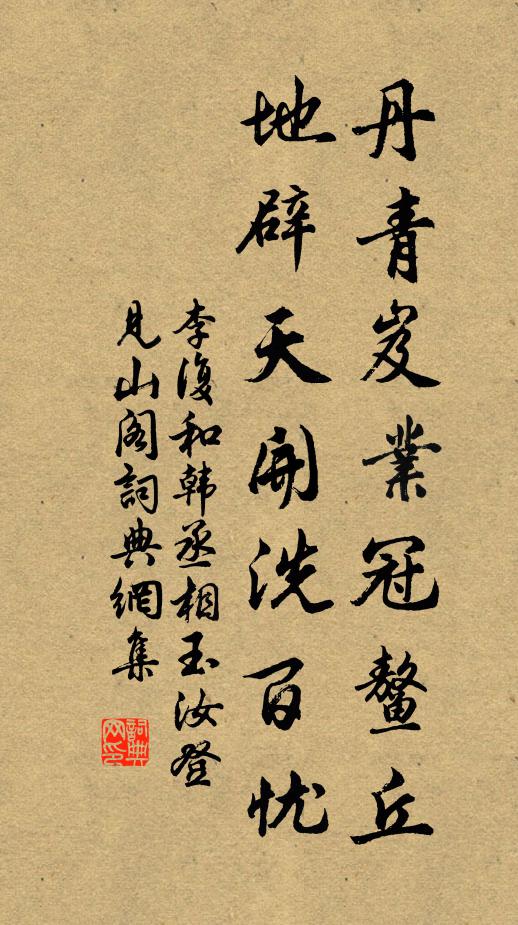 丹青岌業冠鰲丘
地辟天開洗百忧
李復和韩丞相玉汝登
見山阁詞典網集
詞典
网印